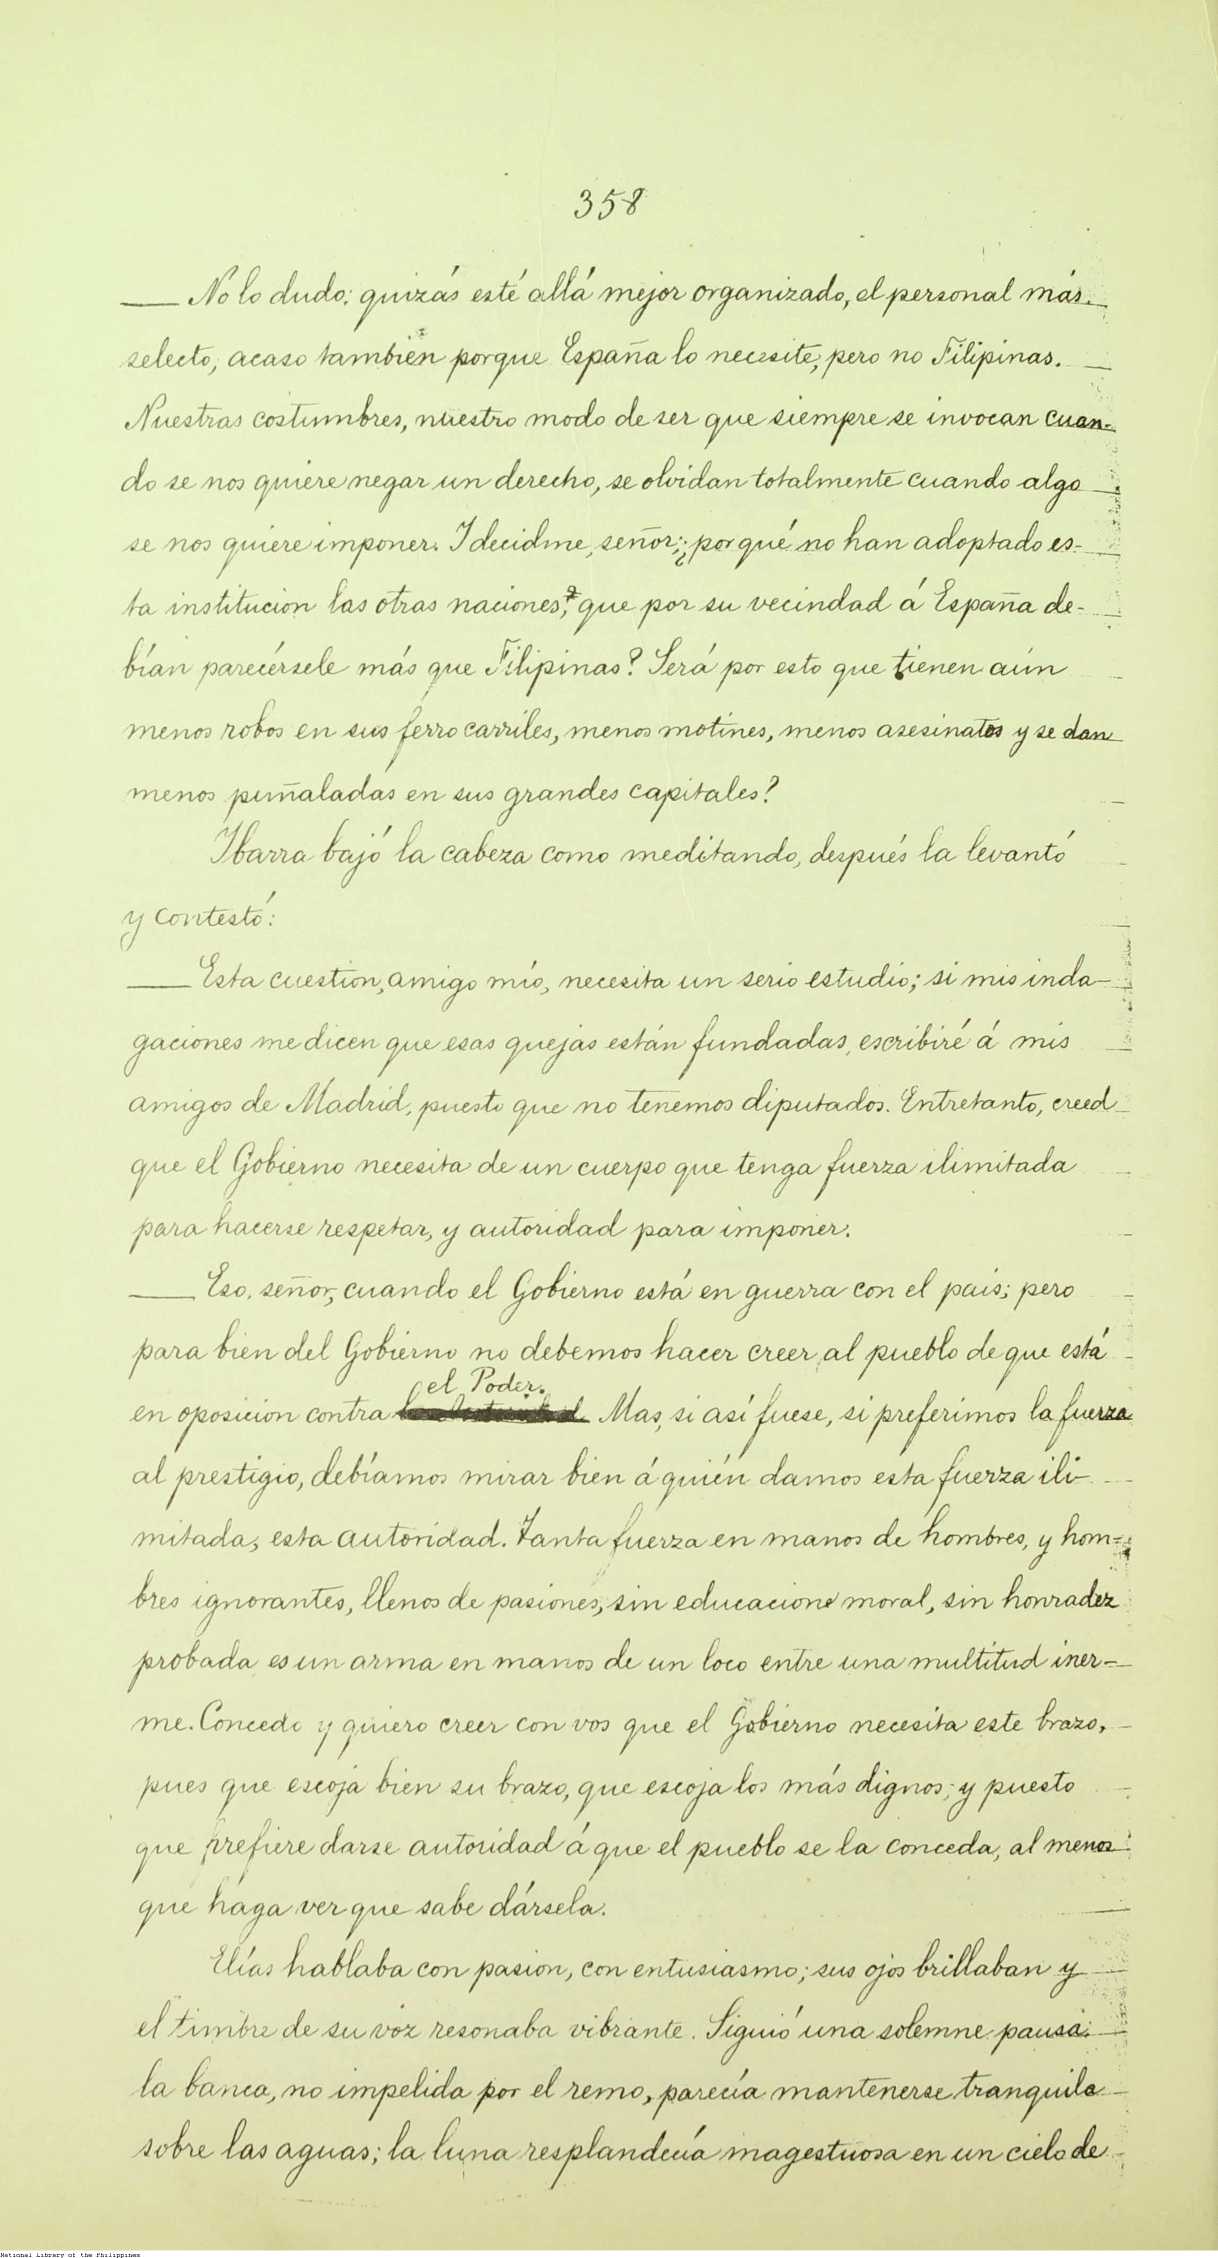 358
— No lo dudo; quizás esté allá mejor organizado, el personal más
selecto, acaso también porque España lo necesite, pero no Filipinas.
Nuestras costumbres, nuestro modo de ser que siempre se invocan cuan-
do se nos quiere negar un derecho, se olvidan totalmente cuando algo
se nos quiere imponer. I decidme, señor; ¿por qué no han adoptado es-
ta institucion las otras naciones, que por su vecindad á España de-
bían parecérsele más que Filipinas? Será por esto que tienen aún
menos robos en sus ferrocarriles, menos motines, menos asesinatos y se dan
menos puñaladas en sus grandes capitales?
Ibarra bajó la cabeza como meditando, después la levantó
y contestó:
— Esta cuestion, amigo mío, necesita un serio estudio; si mis inda-
gaciones me dicen que esas quejas están fundadas, escribiré á mis
amigos de Madrid, puesto que no tenemos diputados. Entretanto, creed
que el Gobierno necesita de un cuerpo que tenga fuerza ilimitada
para hacerse respetar, y autoridad para imponer.
— Eso, señor, cuando el Gobierno está en guerra con el país; pero
para bien del Gobierno no debemos hacer creer al pueblo de que está
el Poder.
en oposicion contra Mas, si así fuese, si preferimos la fuerza
al prestigio, debíamos mirar bien á quién damos esta fuerza ili-
mitada, esta autoridad. Tanta fuerza en manos de hombres, y hom-
bres ignorantes, llenos de pasiones, sin educacion moral, sin honradez
probada es un arma en manos de un loco entre una multitud iner-
me. Concedo y quiero creer con vos que el Gobierno necesita este brazo,
pues que escoja bien su brazo, que escoja los más dignos; y puesto
que prefiere darse autoridad á que el pueblo se la conceda, al menos
que haga ver que sabe dársela.
Elías hablaba con pasion, con entusiasmo; sus ojos brillaban y
el timbre de su voz resonaba vibrante. Siguió una solemne pausa:
la banca, no impelida por el remo, parecía mantenerse tranquila
sobre las aguas; la luna resplandecía magestuosa en un cielo de
National Library of the Philippines